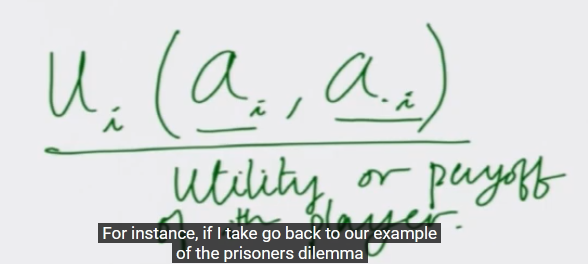 u_i (a_i, a_-i)
Utility or payoff
of ith player.
For instance, if I take go back to our example
of the prisoners dilemma